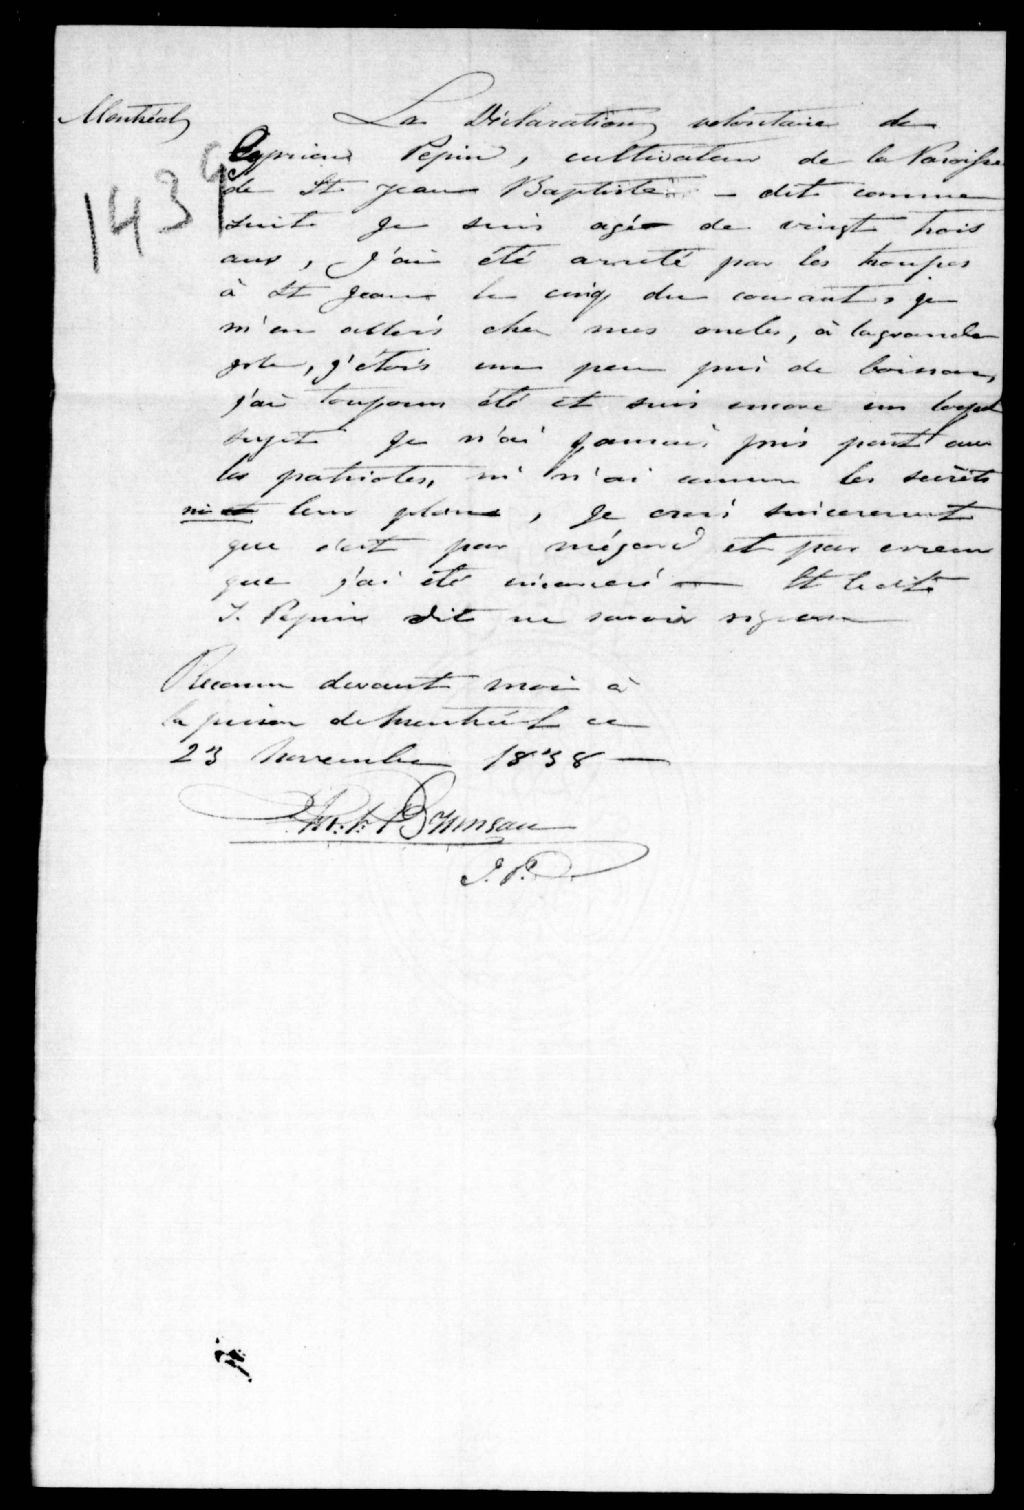 Montréal
1439
La Déclaration volontaire de
Cyprien Pepin, cultivateur de la Paroisse
de St Jean Baptiste — dit comme
suit Je suis agé de vingt trois
ans, J'ai été arreté par les troupes
à St Jean le cinq du courant, je
m'en allois chez mes oncles, à la grande
, j'étois un peu pris de boisson,
j'ai toujours été et suis encore un loyal
sujet Je n'ai jamais pris part aux
les patriotes, ni n'ai connu les secrèts
ni leur plans, Je crois sincerement
que c'est par mégard et par erreur
que j'ai été incarceré — Et le dit
J. Pepin dit ne savoir signer
Reconnu devant moi à
la prison de Montréal ce
23 Novembre 1838 —
Bruneau
J. P.